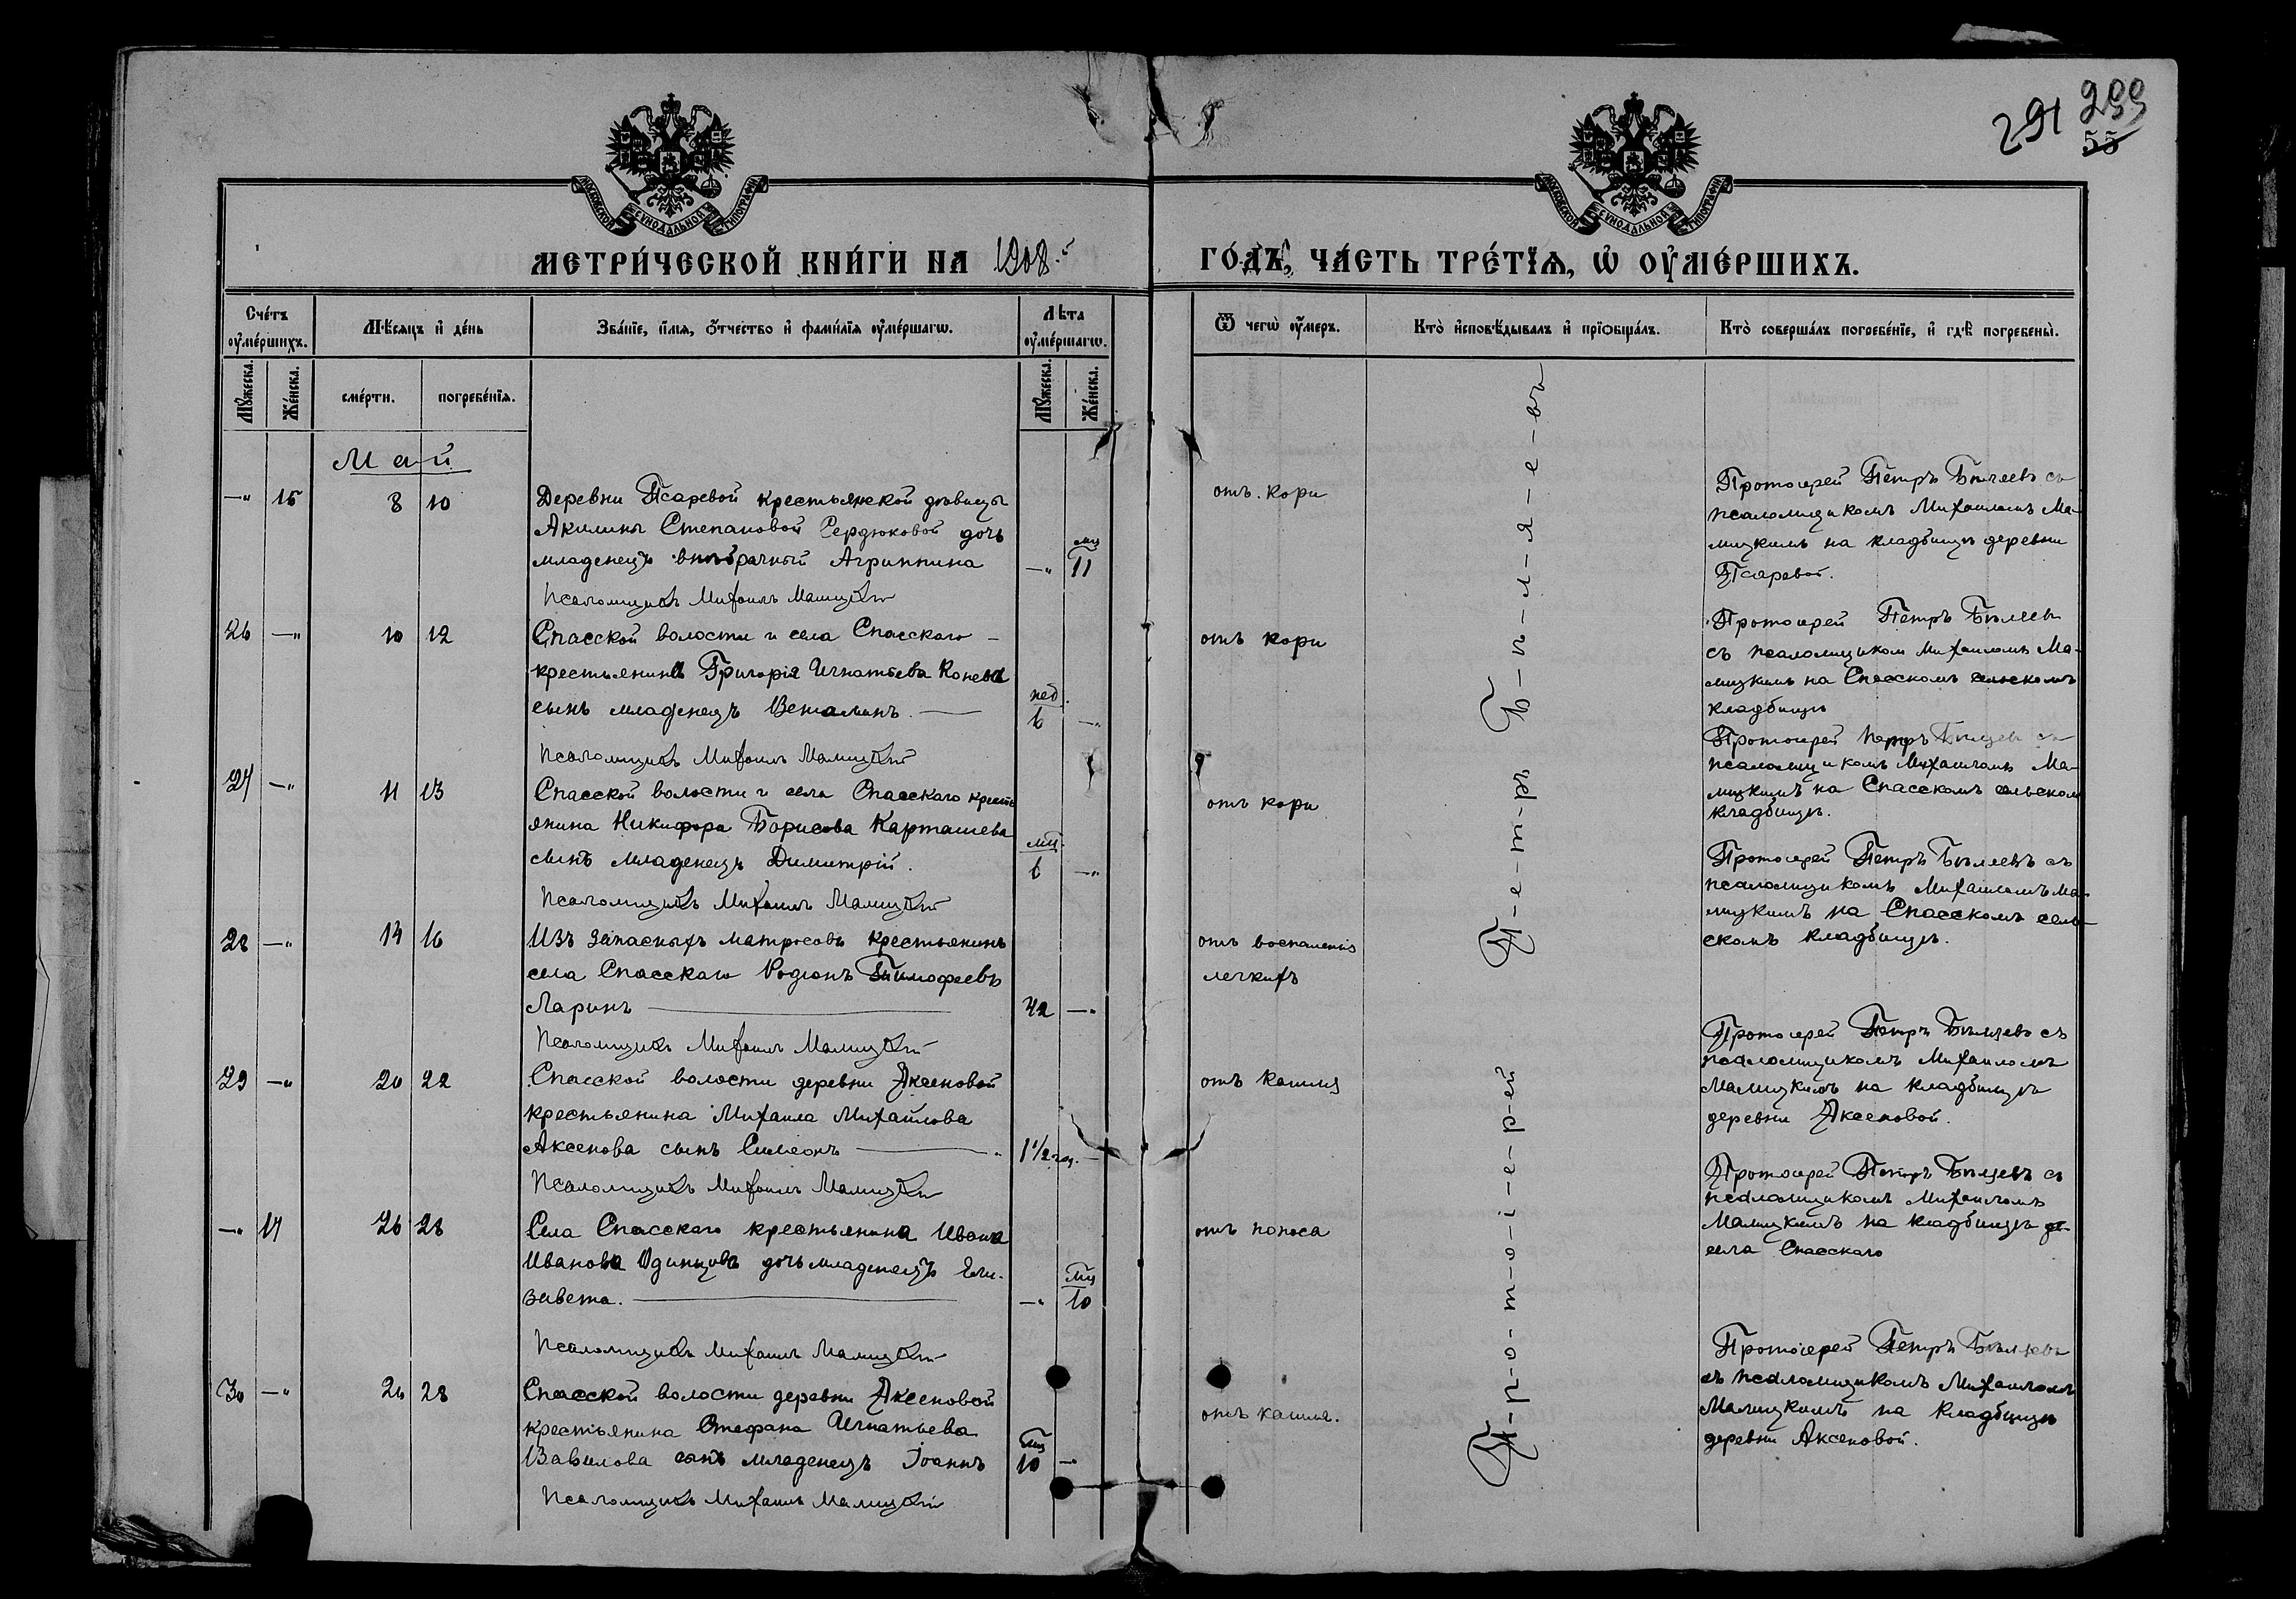 291 299
55
МОСКОВСКОЙ СѴНОДАЛЬНОЙ ТИПОГРАФІИ
МОСКОВСКОЙ СѴНОДАЛЬНОЙ ТИПОГРАФІИ
МЕТРИ́ЧЕСКОЙ КНИ́ГИ НА 1908.
ГО́ДЪ, ЧА́СТЬ ТРЕ́ТЇѦ, Ѡ҆ ОУ҆МЕ́РШИХЪ.
Сче́тъ оу҆ме́ршихъ.
Мѣ́сяцъ и҆ де́нь
Зва́нїе, и҆́мѧ, ѻ҆́тчество и҆ фами́лїѧ оу҆ме́ршагѡ.
Лѣ́та оу҆ме́ршагѡ.
Ѿ чегѡ̀ оу҆́меръ.
Кто̀ и҆сповѣ́дывалъ и҆ прїѻбща́лъ.
Кто̀ соверша́лъ погребе́нїе, и҆ гдѣ̀ погребены̀.
Мꙋ́жеска. Же́нска. сме́рти. погребе́нїѧ. Мꙋ́жеска. Же́нска.
Май
—" 15 8 10 Деревни Псаревой крестьянской дѣвицы
Акилины Степановой Сердюковой дочь
младенецъ внѣбрачный Агриппина —" мц 11
Псаломщикъ Михаилъ Малицкій
отъ кори
Протоіерей Петръ Бѣляевъ съ
псаломщикомъ Михаиломъ Ма-
лицкимъ на кладбищѣ деревни
Псаревой.
26 —" 10 12 Спасской волости и села Спасскаго —
крестьянина Григорія Игнатьева Конева
сынъ младенецъ Веніаминъ. — нед. 6 —"
Псаломщикъ Михаилъ Малицкій
отъ кори
Протоіерей Петръ Бѣляевъ
съ псаломщиком Михаиломъ Ма-
лицкимъ на Спасскомъ сельскомъ
кладбищѣ
27 —" 11 13 Спасской волости и села Спасскаго кресть
янина Никифора Борисова Карташева
сынъ младенецъ Димитрій. мц. 6 —"
Псаломщикъ Михаилъ Малицкій
отъ кори
Протоіерей Петръ Бѣляевъ съ
псаломщикомъ Михаиломъ Ма-
лицкимъ на Спасскомъ сельском
кладбищѣ.
28 —" 14 16 Изъ запасныхъ матросовъ крестьянинъ
села Спасскаго Родіонъ Тимофеевъ
Ларинъ — 42 —"
Псаломщикъ Михаилъ Малицкій
отъ воспаленія
легкихъ
Протоіерей Петръ Бѣляевъ съ
псаломщикомъ Михаиломъ Ма-
лицкимъ на Спасскомъ сель-
скомъ кладбищѣ.
29 —" 20 22 Спасской волости деревни Аксеновой
крестьянина Михаила Михайлова
Аксенова сынъ Симеонъ — 1 1/2 год. —
Псаломщикъ Михаилъ Малицкій
отъ кашля
Протоіерей Петръ Бѣляевъ съ
псаломщикомъ Михаиломъ
Малицкимъ на кладбищѣ
деревни Аксеновой.
—" 17 26 28 Села Спасскаго крестьянина Ивана
Иванова Одинцова дочь младенецъ Ели-
завета. — —" мц 10
Псаломщикъ Михаилъ Малицкій
отъ поноса
Протоіерей Петръ Бѣляевъ съ
псаломщикомъ Михаиломъ
Малицкимъ на кладбищѣ де-
села Спасскаго
30 —" 26 28 Спасской волости деревни Аксеновой
крестьянина Стефана Игнатьева
Вавилова сынъ младенецъ Іоаннъ мц 10 —"
Псаломщикъ Михаилъ Малицкій
отъ кашля.
Протоіерей Петръ Бѣляевъ
съ псаломщикомъ Михаиломъ
Малицкимъ на кладбищѣ
деревни Аксеновой.
П-р-о-т-о-і-е-р-ей П-е-т-ръ Б-ѣ-л-я-е-въ